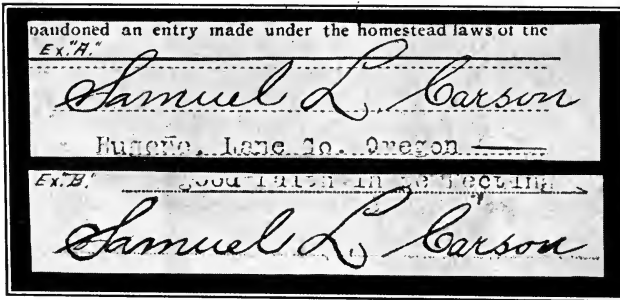 bandoned an entry made under the homestead laws of the
Ex."A."
Samuel L. Carson
Eugene, Lane Co. Oregon
Ex."B."
good faith in
Samuel L. Carson